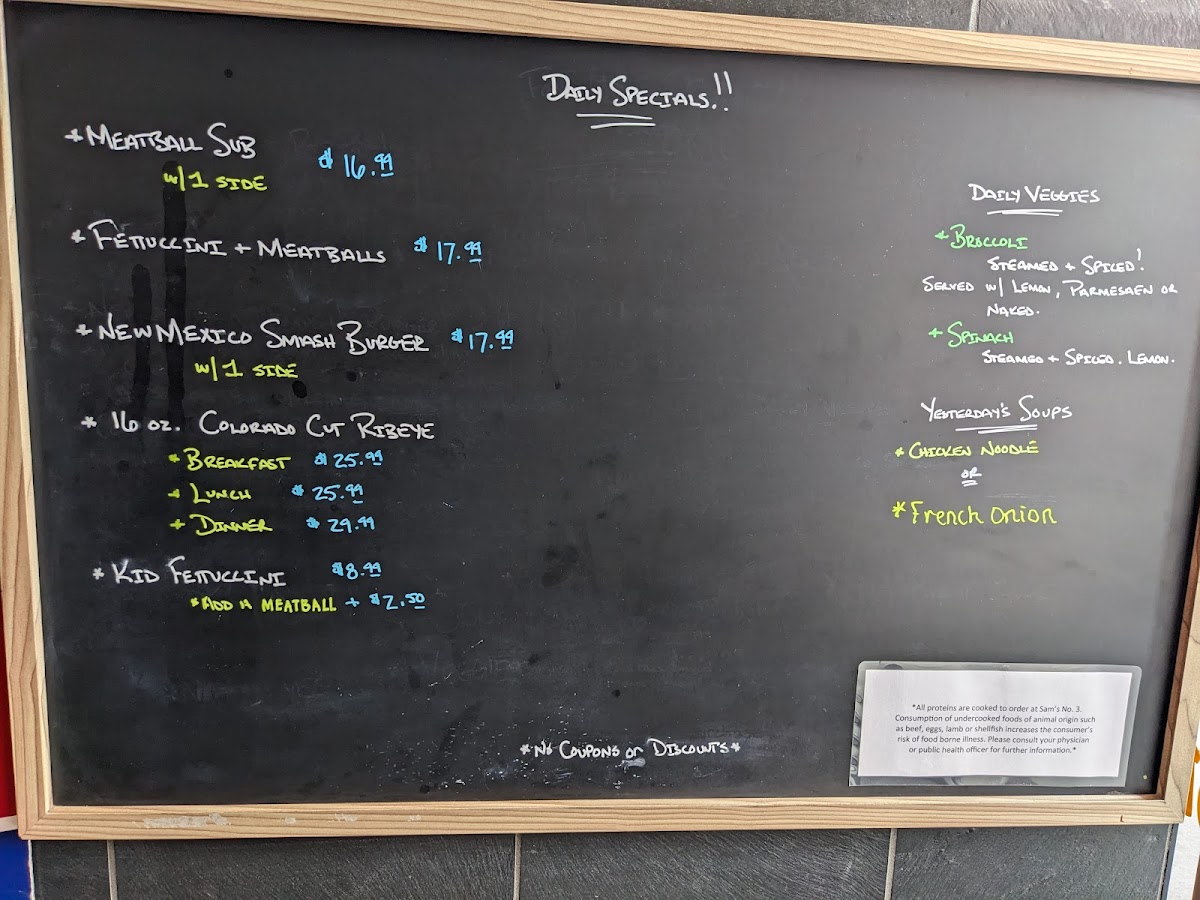 Daily Specials!!
*Meatball Sub $16.99
w/1 side
*Fettuccini + Meatballs $17.99
*New Mexico Smash Burger $17.99
w/1 side
* 16 oz. Colorado Cut Ribeye
*Breakfast $25.99
*Lunch $25.99
*Dinner $29.99
*Kid Fettuccini $8.99
*Add a Meatball + $2.50
Daily Veggies
*Broccoli
Steamed + Spiced!
Served w/ Lemon, Parmesaen or
Naked.
*Spinach
Steamed + Spiced. Lemon.
Yesterday's Soups
*Chicken Noodle
or
*French Onion
*No Coupons or Discounts*
*All proteins are cooked to order at Sam's No. 3.
Consumption of undercooked foods of animal origin such
as beef, eggs, lamb or shellfish increases the consumer's
risk of food borne illness. Please consult your physician
or public health officer for further information.*